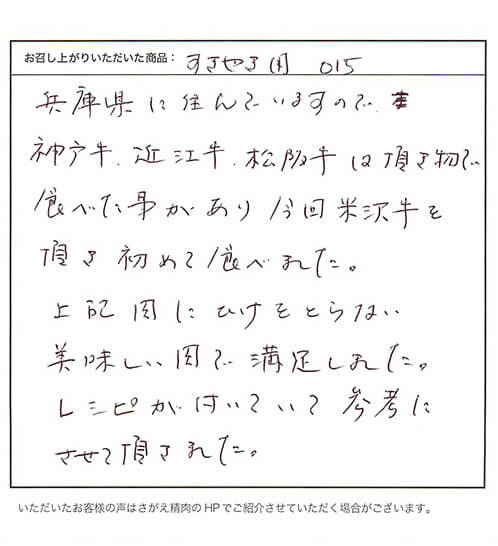 お召し上がりいただいた商品： すきやき用 015
兵庫県に住んでいますので、
神戸牛、近江牛、松阪牛は頂き物で
食べた事があり今回米沢牛を
頂き初めて食べました。
上記肉にひけをとらない
美味しい肉で満足しました。
レシピが付いていて参考に
させて頂きました。
いただいたお客様の声はさがえ精肉のHPでご紹介させていただく場合がございます。